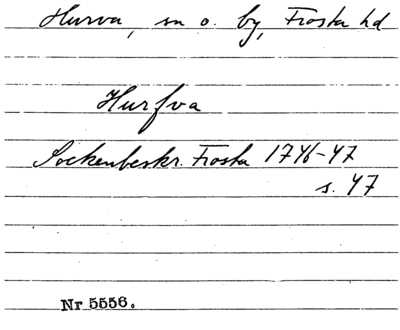 Hurva, sn o. by, Frosta hd
Hurfva
Sockenbeskr. Frosta 1746-47
s. 47
Nr 5556.